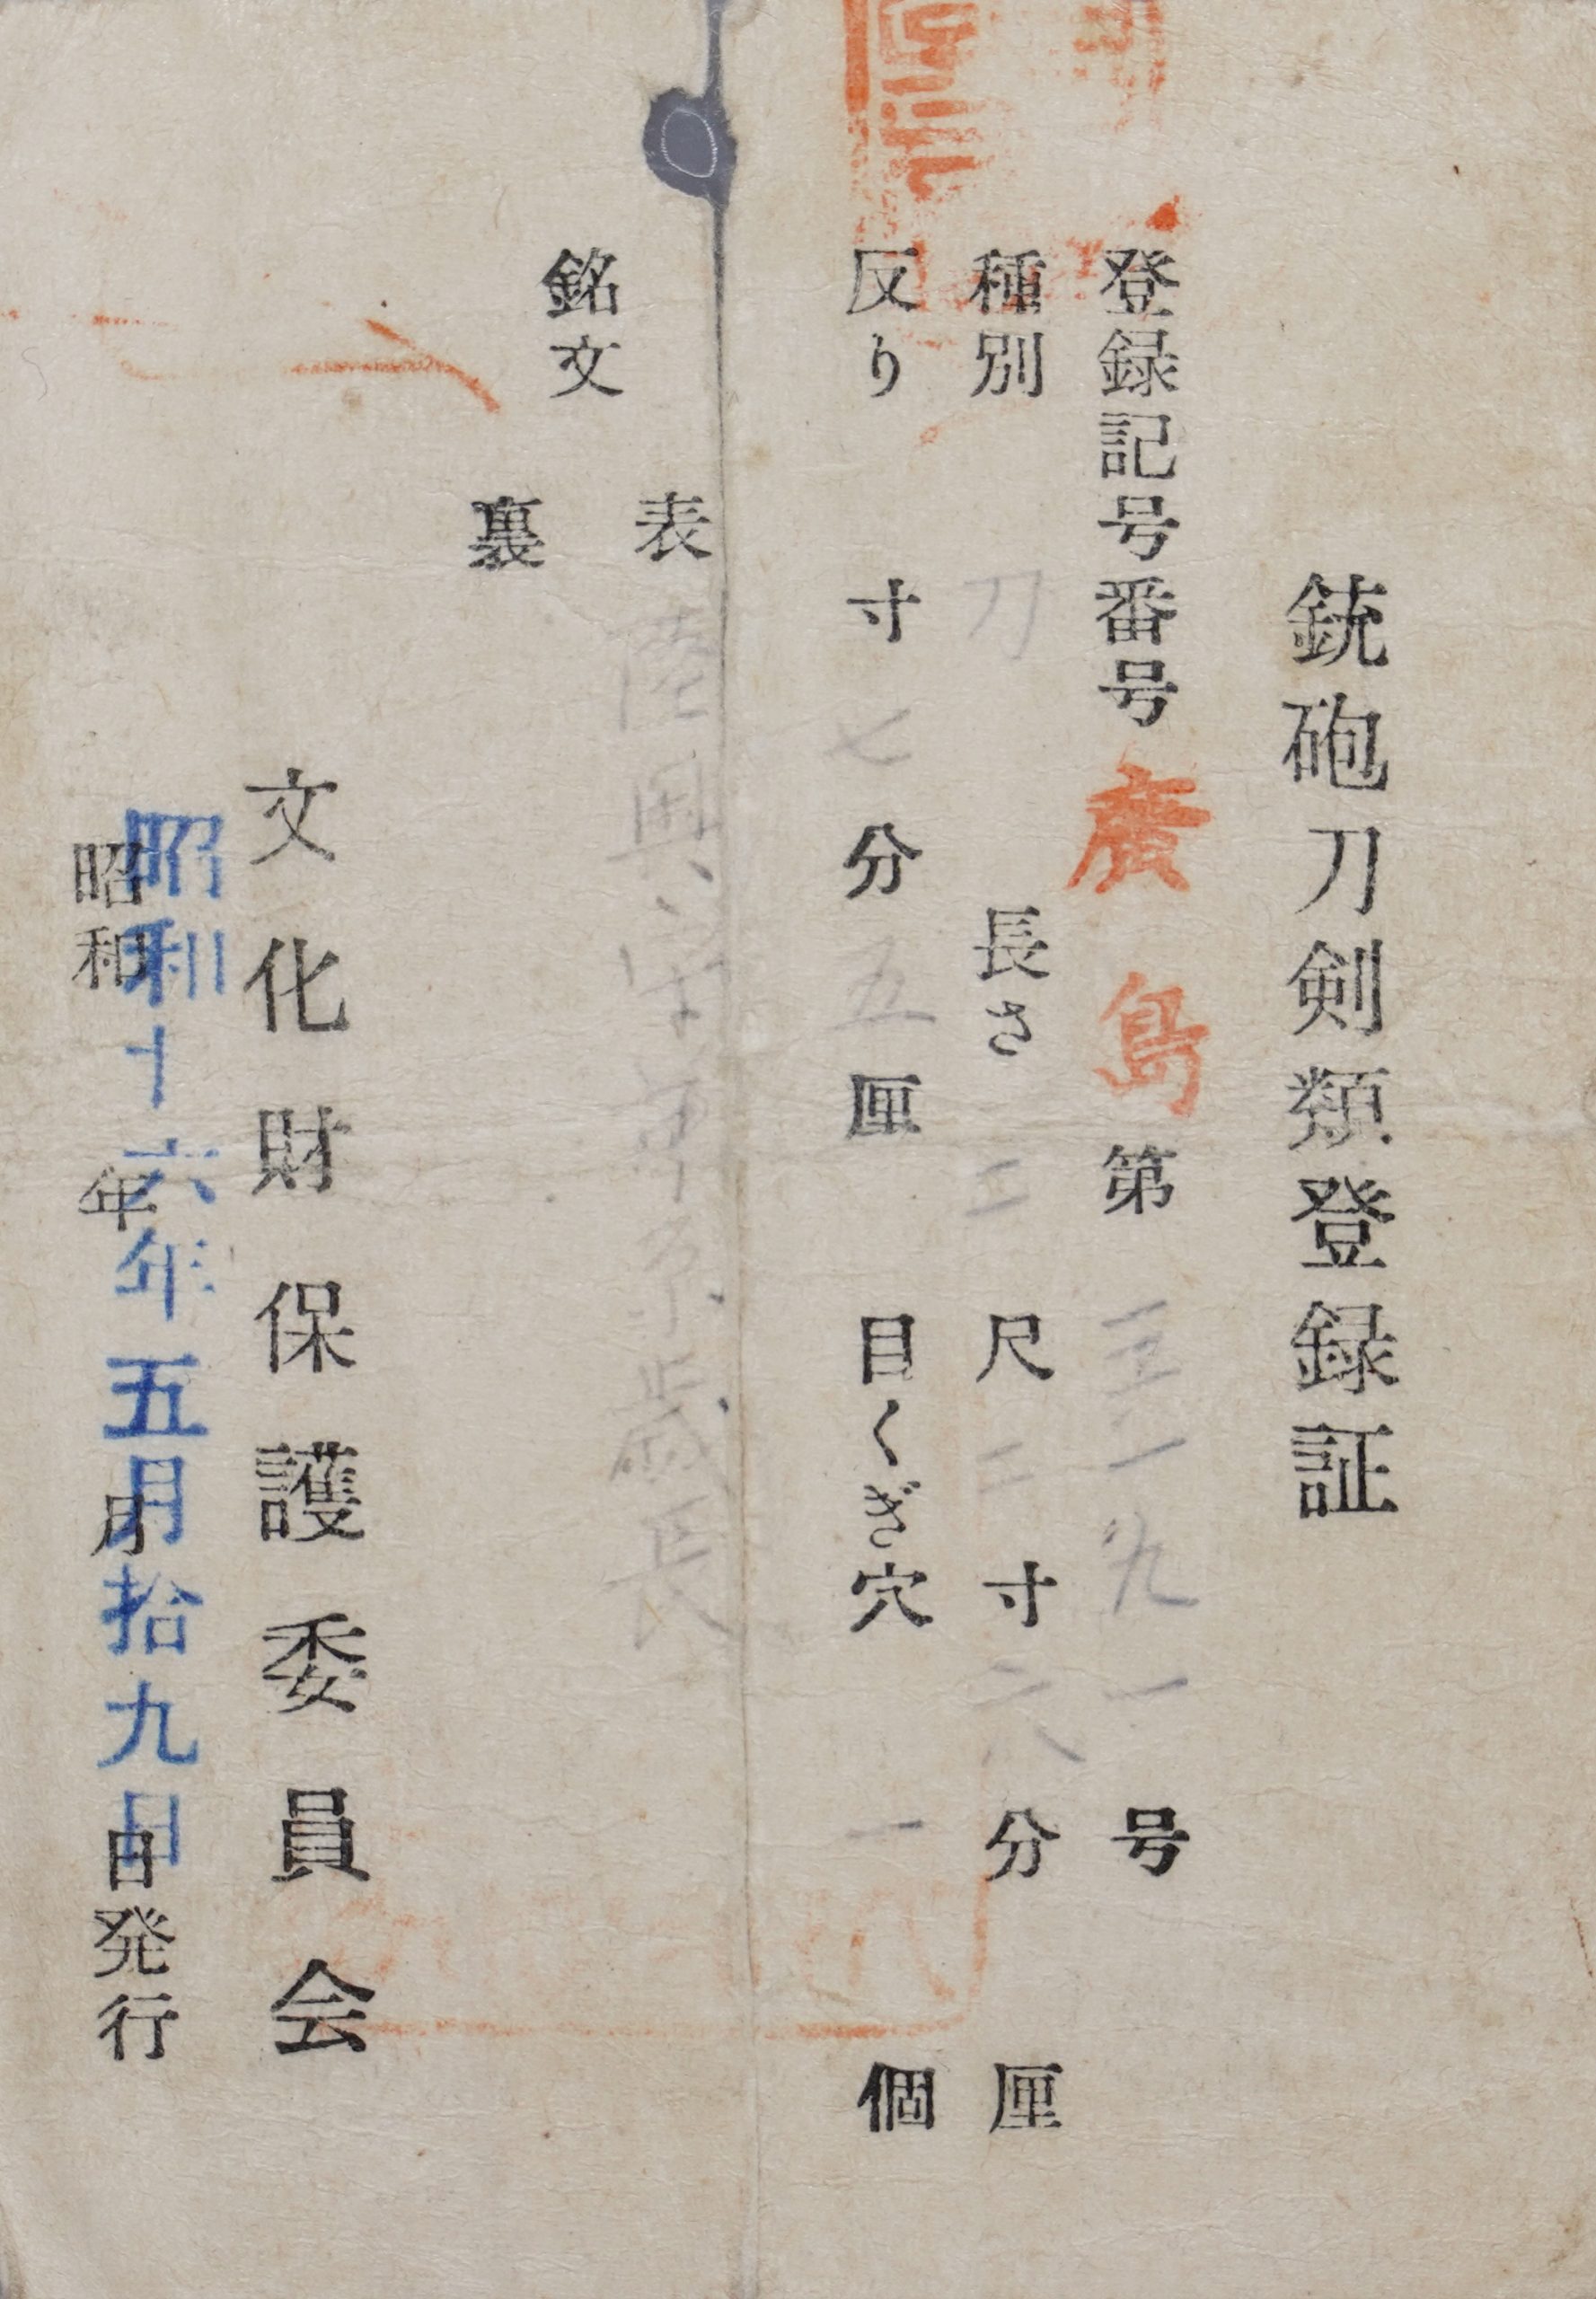 銃砲刀剣類登録証
登録記号番号 廣島 第 一九一 号
種別 刀 長さ 二 尺 二 寸 分 厘
反り 寸 七 分 五 厘 目くぎ穴 一 個
表 陸奥守 歳長
銘文
裏
文化財保護委員会
昭和 六年五月拾九日
昭和 年 月 日発行